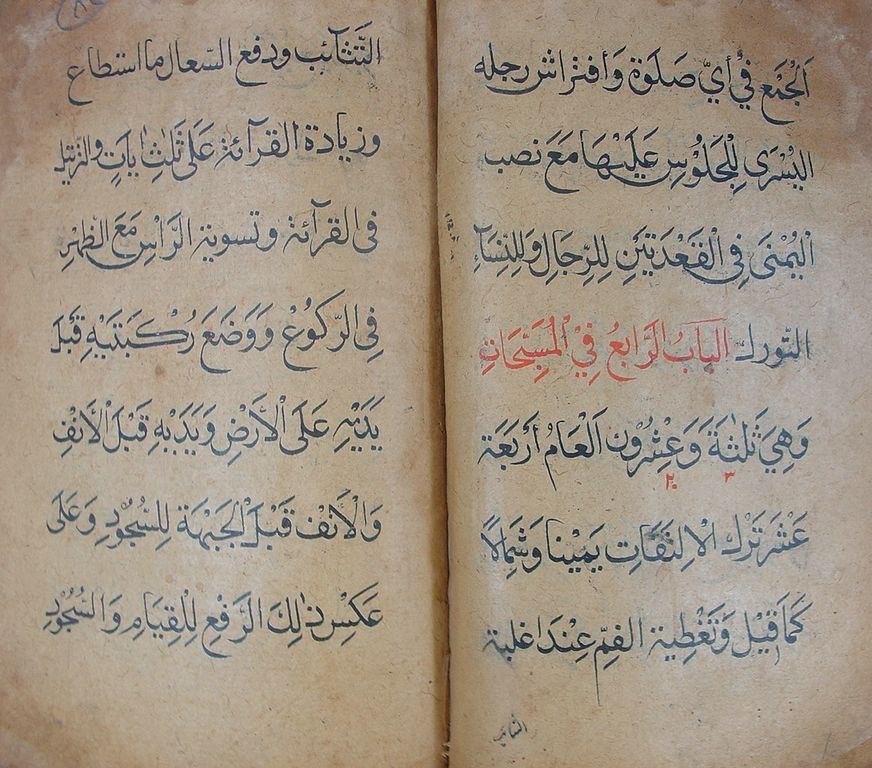 اَلْجُمَعِ فِي أَيِّ صَلٰوةٍ وَأفتراش رجله
اليُسْرَى لِلْجُلُوسِ عَلَيْهَا مَعَ نصب
اليُمْنَى فِي الْقَعْدَتَيْنِ لِلرِّجَالِ وَلِلنِّسَآءِ
التورك اَلْبَابُ الرَّابِعُ فِي الْمُسْتَحَبَّاتِ
وَهِيَ ثَلٰثَةٌ وَعِشْرُون اَلْعَامُ أَرَبَعَة
٣ ٢٠
عَشَرَ تَرْكُ الاِلتفَاتِ يَمِيْنا وَشِمَالًا
كَمَا قِيْلَ وَتَغْطِية الفِمّ عِنْدَ اغلبة
التثا
التَّثَآئبِ ودفع السّعال ما استطاع
وزيادة القرآئة عَلَى ثَلٰثِ اٰيَاتٍ والتّرتيل
فى القرآئة وتسوية الرَّاْسِ مَعَ الظهرِ
فِى الرّكُوْعِ وَوَضَعَ رُكْبَتَيْهِ قَبْلَ
يَدَيْهِ عَلَى الْأَرْضِ وَيَدَيْهِ قَبْلَ الْأَنْفِ
وَالْأَنْفِ قَبْلَ الْجَبْهَةِ لِلسُّجُوْدِ وَعَلَى
عَكْسِ ذٰلِكَ الرَّفْعِ لِلْقِيَامِ وَالسُّجُوْدِ